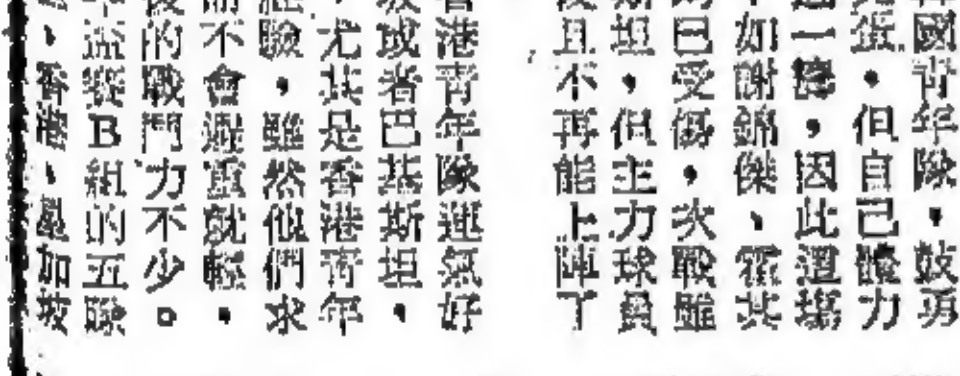 國青年隊，鼓勇
蛋，但自己體力
一樓，因此這場
如謝錦傑、霍其
已受傷，次戰雖
坦，但主力球員
且不再能上陣了
港青年隊運氣好
或者巴基斯坦，
尤其是香港青年
驗，雖然他們求
不會避重就輕，
的戰鬥力不少。
盃賽B組的五隊
、香港、星加坡